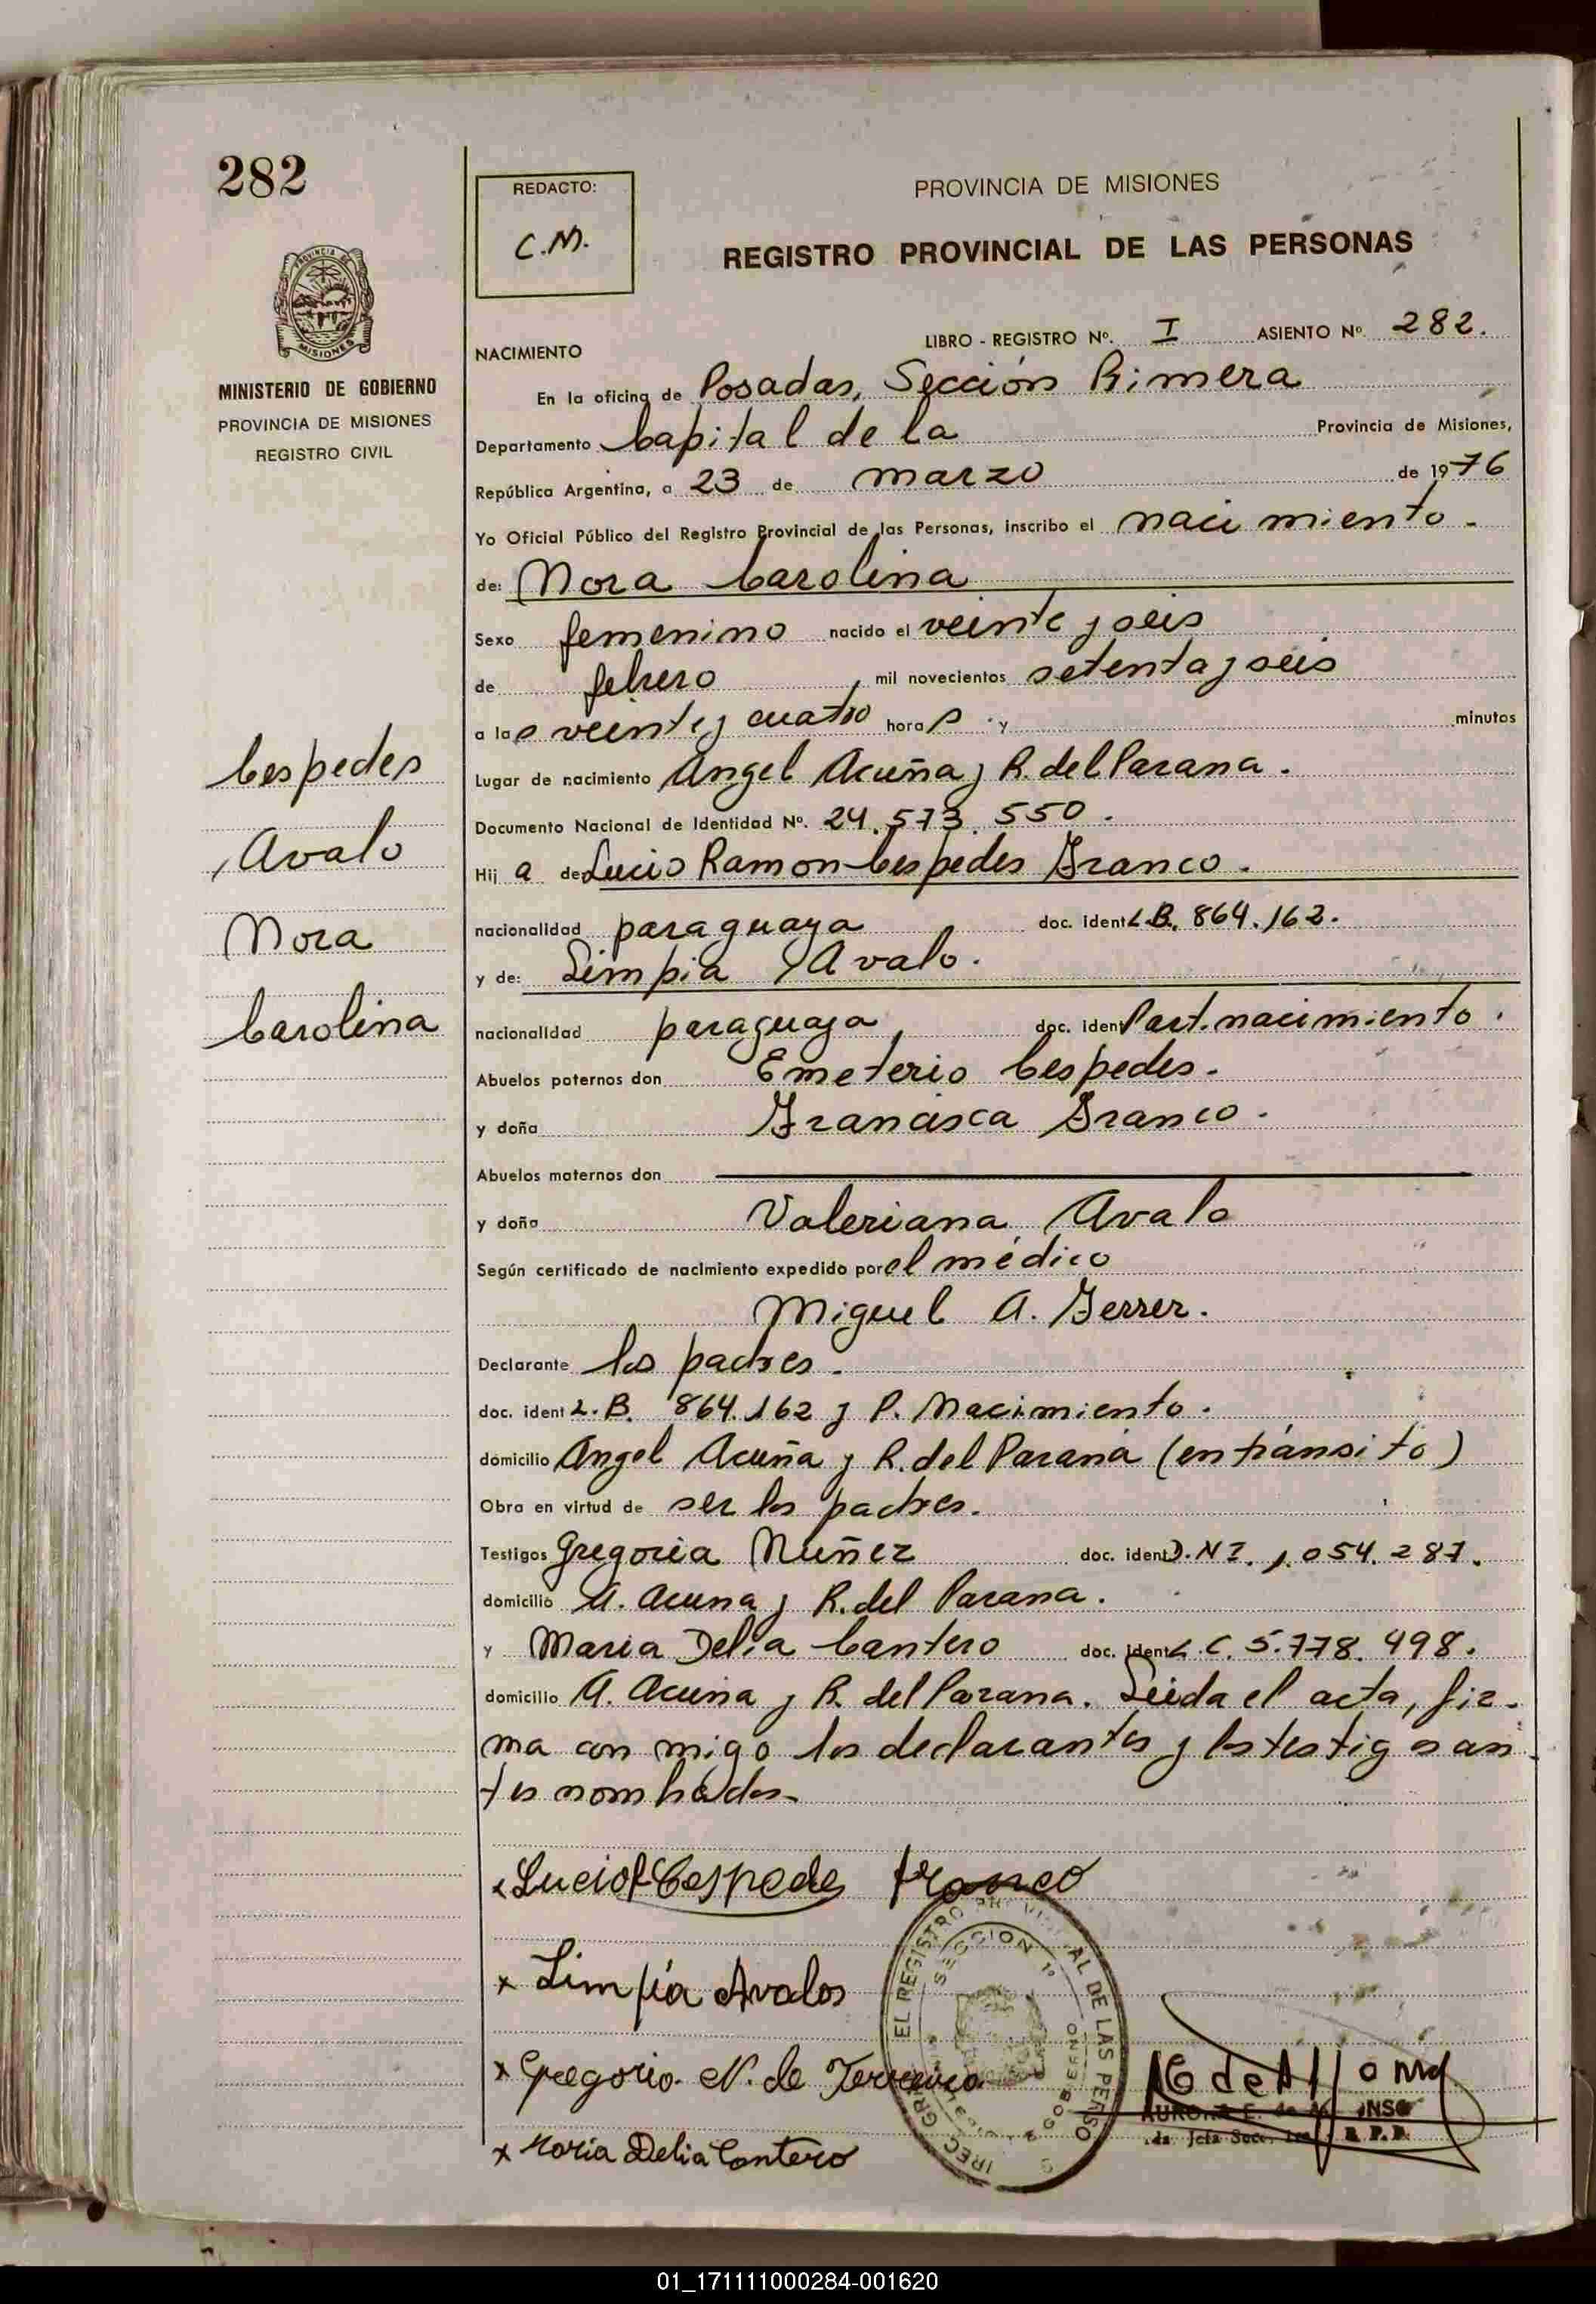 282
PROVINCIA DE
MISIONES
MINISTERIO DE GOBIERNO
PROVINCIA DE MISIONES
REGISTRO CIVIL
Cespedes
Avalo
Nora
Carolina
REDACTO:
C.M.
PROVINCIA DE MISIONES
REGISTRO PROVINCIAL DE LAS PERSONAS
LIBRO - REGISTRO Nº. I ASIENTO Nº. 282.
NACIMIENTO
En la oficina de Posadas, Sección Primera
Departamento Capital de la Provincia de Misiones,
República Argentina, a 23 de marzo de 1976
Yo Oficial Público del Registro Provincial de las Personas, inscribo el nacimiento.
de: Nora Carolina
Sexo femenino nacido el veinte y seis
de febrero, mil novecientos setenta y seis
a las veinte y cuatro horas y minutos
Lugar de nacimiento Angel Acuña y R. del Parana.
Documento Nacional de Identidad Nº. 24.573.550.
Hij a de Lucio Ramon Cespedes Franco.
nacionalidad paraguaya doc. ident L.B. 864.162.
y de: Limpia Avalo.
nacionalidad paraguaya, doc. iden Part. nacimiento.
Abuelos paternos don Emeterio Cespedes.
y doña Francisca Franco.
Abuelos maternos don
y doña Valeriana Avalo
Según certificado de nacimiento expedido por el médico
Miguel A. Ferrer.
Declarante los padres.
doc. ident L.B. 864.162 y P. Nacimiento.
domicilio Angel Acuña y R. del Parana (en tránsito)
Obra en virtud de ser los padres.
Testigos Gregoria Nuñez doc. ident D.N I. 1.054.287.
domicilio A. Acuna y R. del Parana.
y Maria Delia Cantero doc. ident L.C. 5.778.498.
domicilio A. Acuña y R. del Parana. Leida el acta, fir-
ma con migo los declarantes y los testigos an
tes nombrados.
x Lucio R Cespedes franco
x Limpia Avalos
x Gregoria N. de
x Maria Delia Cantero
EL REGISTRO PROVINCIAL DE LAS PERSO
SECCION 1º
GOBIERNO
01_171111000284-001620